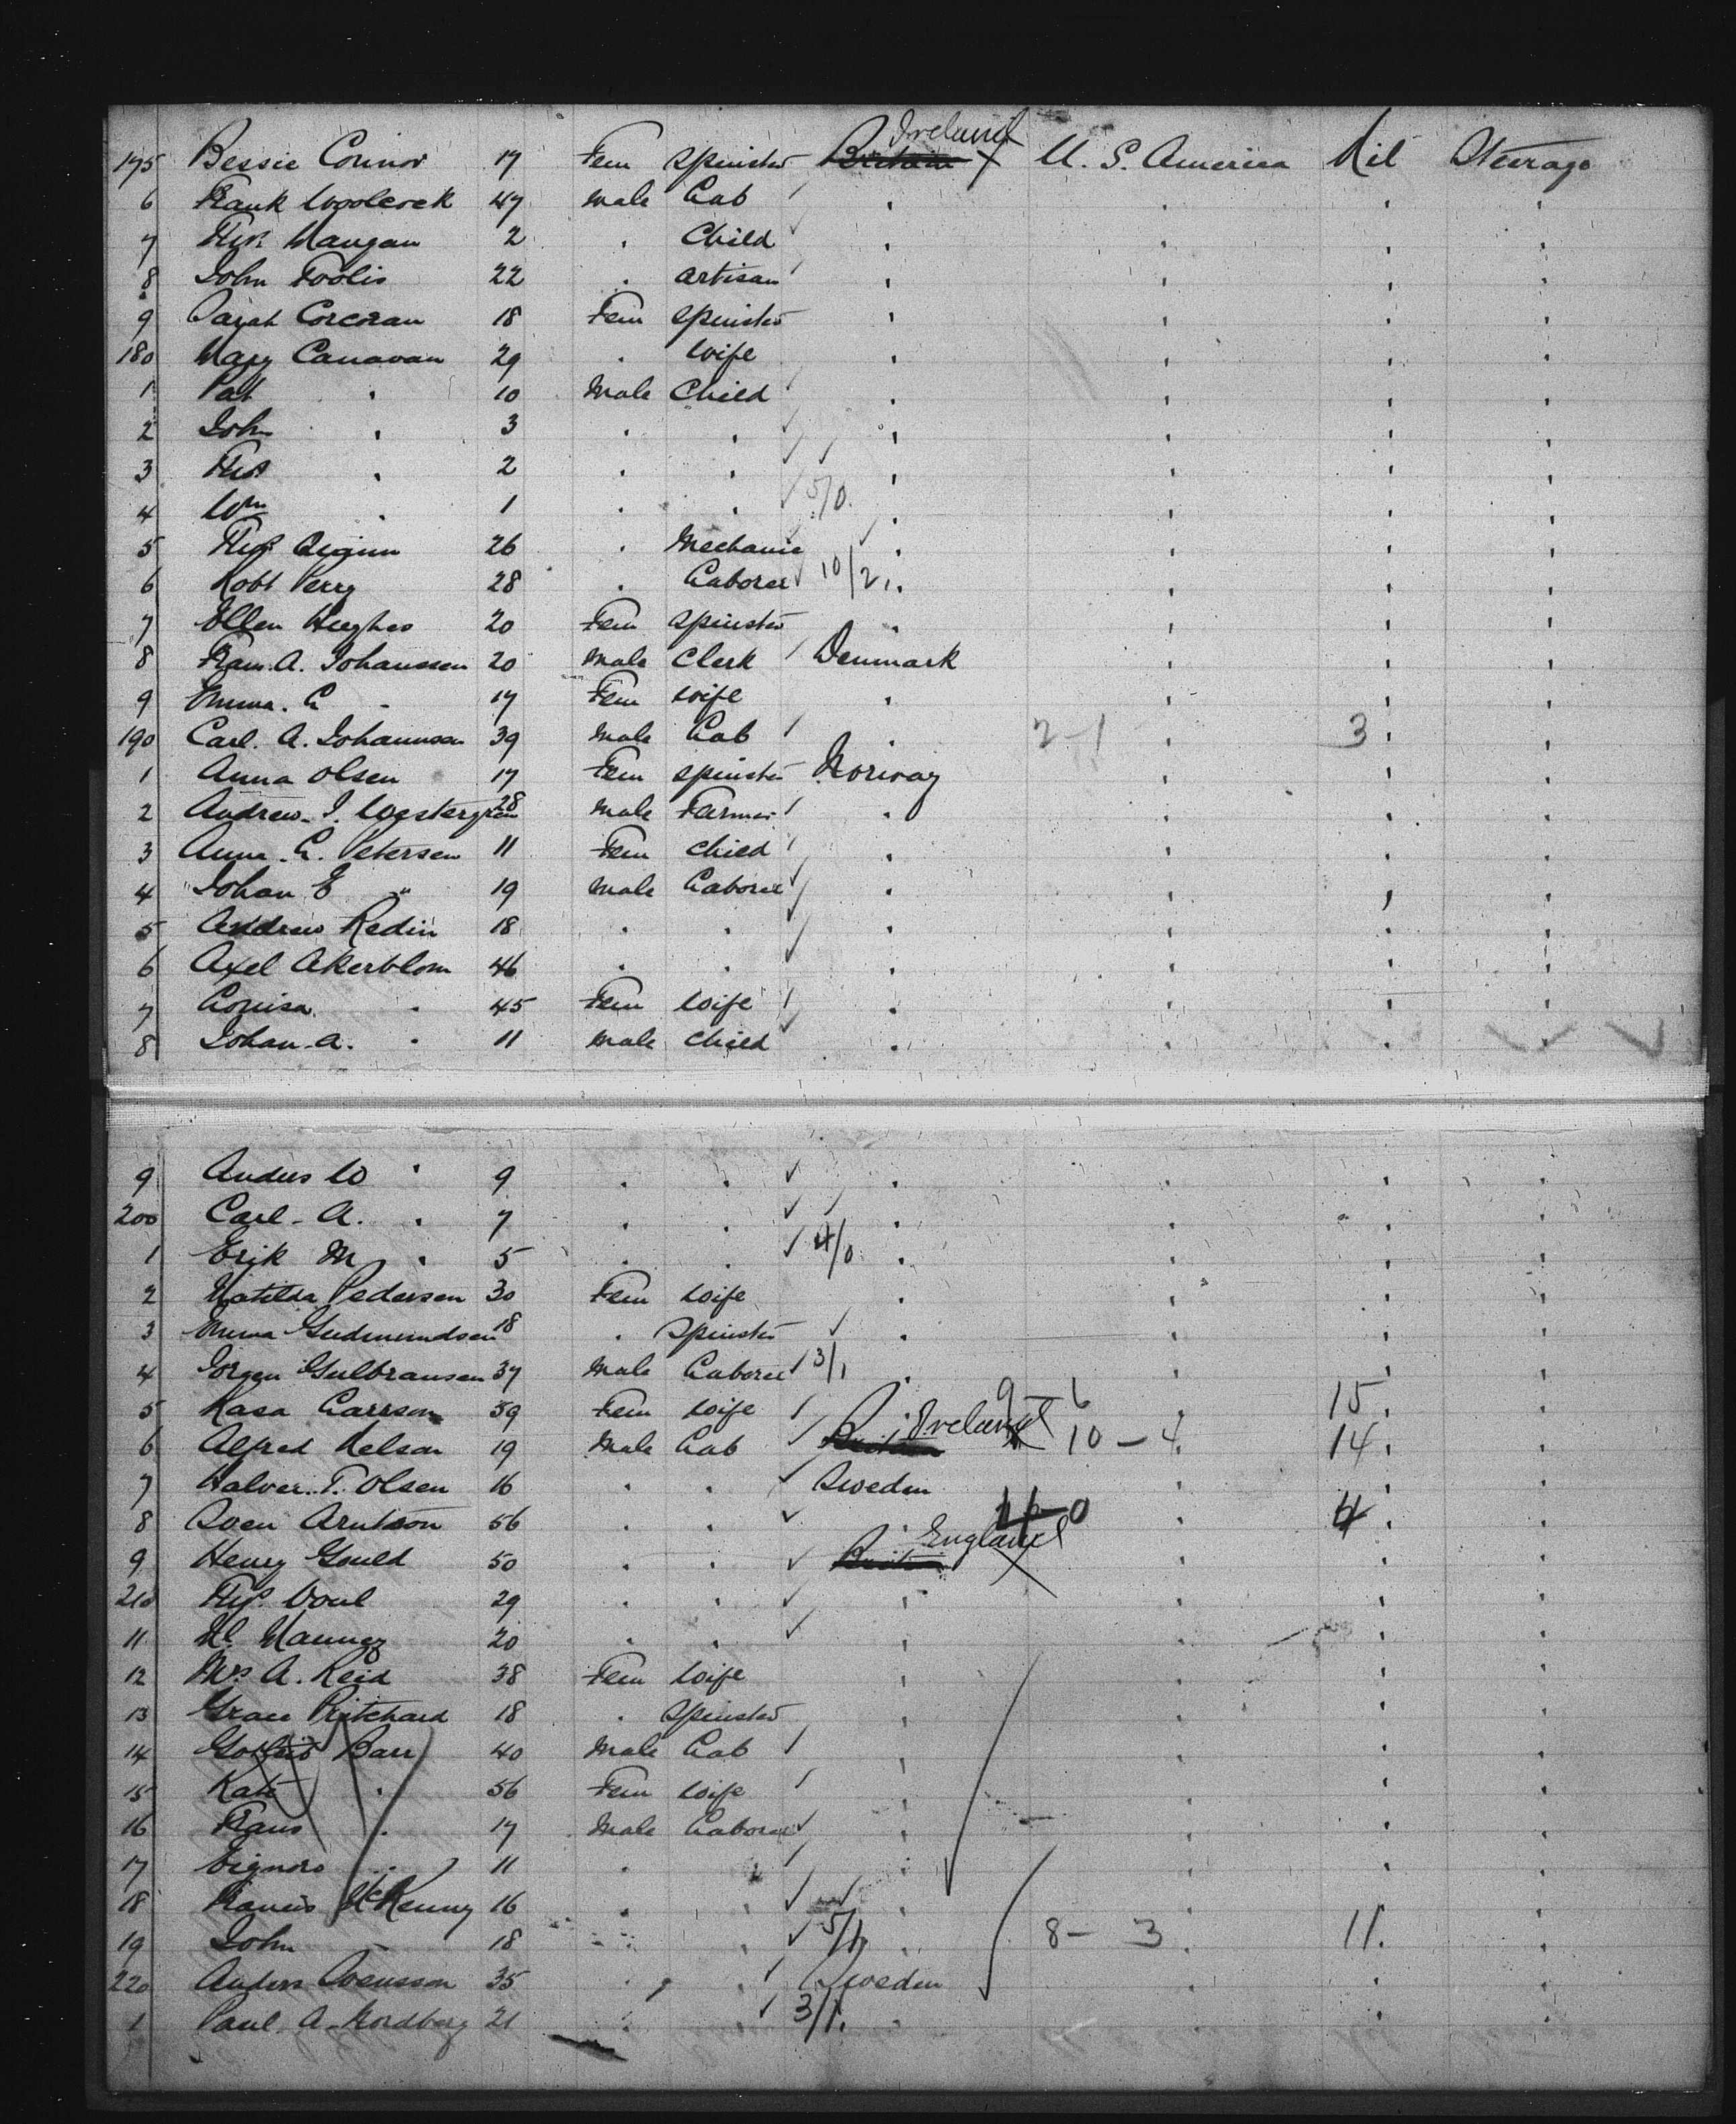 175 Bessie Connor 17 Fem Spinster Britain Ireland U. S. America Nil Steerage
6 Frank Woolcock 47 male Lab
7 Thos Mangan 2 . Child
8 John Foolis 22 . artisan
9 Sarah Corcoran 18 Fem Spinster
180 Mary Canavan 29 . Wife
1 Pat " 10 Male Child
2 John " 3 . .
3 Thos " 2 . .
4 Wm " 1 . . 5/0
5 Thos 26 . Mechanic
6 Robt Perry 28 . Laborer 10/2
7 Ellen Hughes 20 Fem Spinster
8 Fran. A. Johanssen 20 male Clerk Denmark
9 Emma. C - 17 Fem wife
190 Carl. A. Johannsen 39 male Lab 2-1 3
1 Anna Olsen 17 Fem spinster Norway
2 Andrew. J. Westergren 28 male Farmer
3 Anna. C. Petersen 11 Fem child
4 Johan E " 19 male Laborer
5 Andrew Redin 18 . .
6 Axel Akerblom 46 . .
7 Louisa " 45 Fem Wife
8 Johan. A. " 11 male child
9 Anders W " 9 . .
200 Carl. A. " 7 . .
1 Erik M " 5 . . 4/0
2 Matilda Pedersen 30 Fem Wife
3 Emma Gudmundsen 18 . Spinster
4 Jorgen Gulbransen 37 Male Laborer 3/1
5 Kasa Larrson 39 Fem wife 9-6 15
6 Alfred Nelson 19 Male Lab Britain Ireland 10-4 14
7 Halver. T. Olsen 16 . . Sweden
8 Sven Arntson 56 . . -0 4
9 Henry Gould 50 . . Britain England
210 Thos. 29 . .
11 20 . .
12 Mrs A. Reid 38 Fem Wife
13 Grace Pritchard 18 . Spinster
14 Barr 40 Male Lab
15 Kate " 56 Fem wife
16 Frans " 17 Male Laborer
17 Signoro " 11 .
18 Francis McKenny 16 . .
19 John - 18 . . 5/1 8-3 11
220 Anders Svensson 35 . . Sweden
1 Paul. A. Nordberg 21 . . 3/1